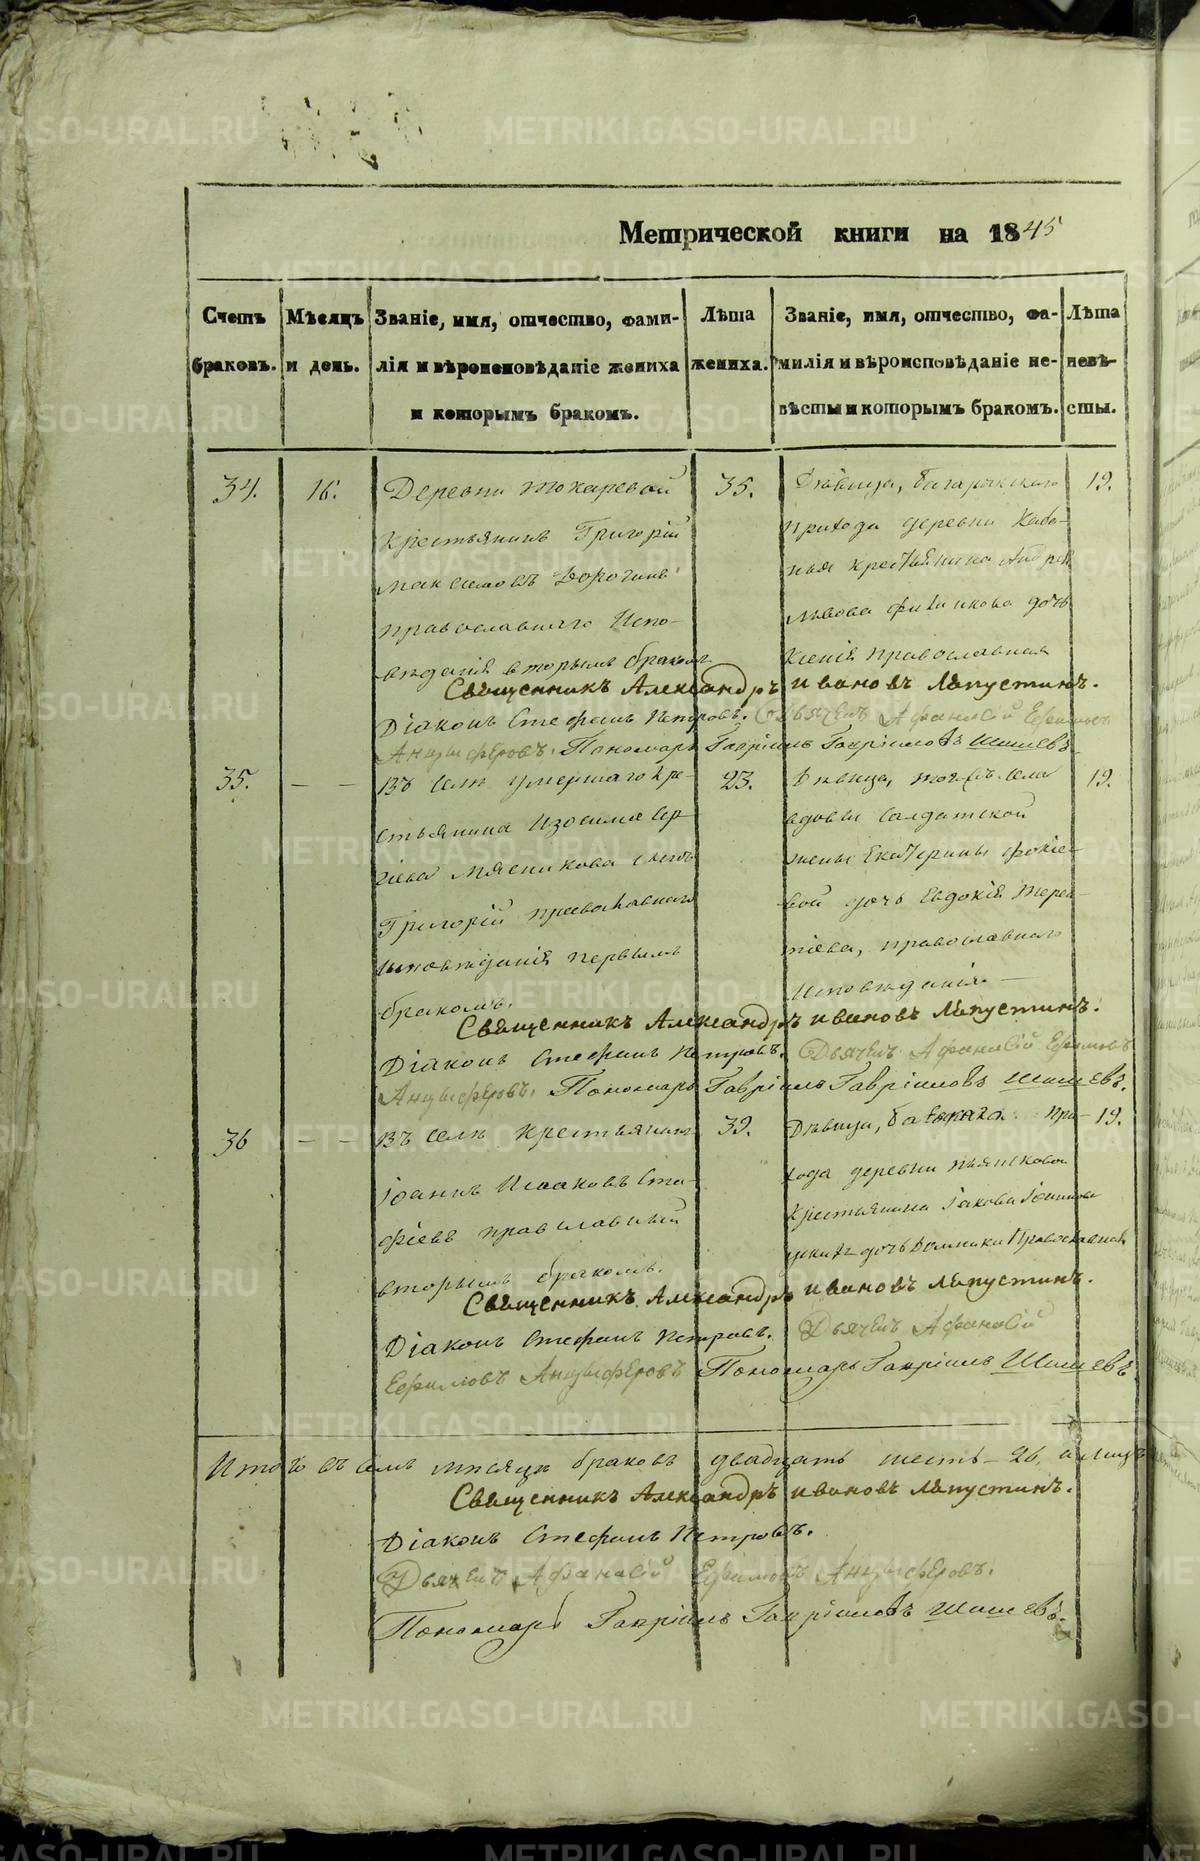 Метрической книги на 1845
Счетъ браковъ.
Мѣсяцъ и день.
Званіе, имя, отчество, фами-
лія и вѣроисповѣданіе жениха
и которымъ бракомъ.
Лѣта
жениха.
Званіе, имя, отчество, фа-
милія и вѣроисповѣданіе не-
вѣсты и которымъ бракомъ.
Лѣта
невѣ-
сты.
34.
16.
Деревни Токаревой
крестьянинъ Григорій
Максимовъ
православнаго Испо-
вѣданія вторымъ бракомъ
35.
Дѣвица, багарякскаго
прихода деревни
крестьянина Андрея
Львова дочь
Ксенія православная
19.
Священникъ Александръ Ивановъ Лапустинъ.
Діаконъ Стефанъ Петровъ. Дьячекъ Афанасій Ефимовъ
Анцыферовъ. Пономарь Гавріилъ Гавріиловъ Шишевъ.
35.
— —
Въ селѣ умершаго кре-
стьянина Изосима Сер-
гіева Мясникова сынъ
Григорій православнаго
исповѣданія первымъ
бракомъ.
23.
Дѣвица, тогожъ села
вдовы солдатской
жены Екатерины Фокіе-
вой дочь Евдокія Терен-
тіева, православнаго
Исповѣданія —
19.
Священникъ Александръ Ивановъ Лапустинъ.
Діаконъ Стефанъ Петровъ. Дьячекъ Афанасій Ефимовъ
Анцыферовъ. Пономарь Гавріилъ Гавріиловъ Шишевъ.
36
— —
Въ селѣ крестьянинъ
Іоаннъ Исааковъ Ста-
фіевъ православный
вторымъ бракомъ.
39.
Дѣвица, при-
хода деревни
крестьянина Іакова
дочь Домника Православная
19.
Священникъ Александръ Ивановъ Лапустинъ.
Діаконъ Стефанъ Петровъ. Дьячекъ Афанасій
Ефимовъ Анцыферовъ Пономарь Гавріилъ Шишевъ
Итого въ семъ мѣсяцѣ браковъ двадцать шесть — 26,
Священникъ Александръ Ивановъ Лапустинъ.
Діаконъ Стефанъ Петровъ.
Дьячекъ Афанасій Ефимовъ Анцыферовъ.
Пономарь Гавріилъ Гавріиловъ Шишевъ.
METRIKI.GASO-URAL.RU